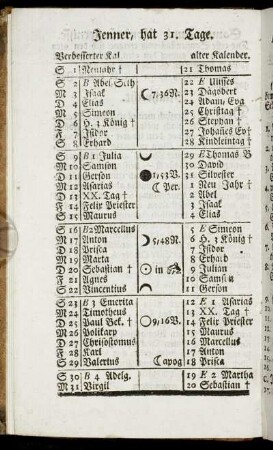 Jenner, hat 31. Tage.
Verbesserter Kal alter Kalender.
S 1 Neujahr † 21 Thomas
S 2 B Abel. Seth 22 E Ulisses
M 3 Isaak ☾ 7,36N. 23 Dagobert
D 4 Elias 24 Adam, Eva
M 5 Simeon 25 Christtag †
D 6 H. 3 König † 26 Stephan †
F 7 Isidor 27 Johañes Ev†
S 8 Erhard 28 Kindleintag †
S 9 B 1 Julia 29 E Thomas B
M 10 Samson 30 David
D 11 Gerson ● 1,53V. 31 Silvester
M 12 Asarias ☾ Per. 1 Neu Jahr †
D 13 XX. Tag † 2 Abel
F 14 Felix Priester 3 Isaak
S 15 Maurus 4 Elias
S 16 B2 Marcellus 5 E Simeon
M 17 Anton ☽ 5,48N. 6 H. 3 König †
D 18 Prisca 7 Isidor
M 19 Marta 8 Erhard
D 20 Sebastian † ☉ in ♒ 9 Julian
F 21 Agnes 10 Samson
S 22 Vincentius 11 Gerson
S 23 B 3 Emerita 12 E 1 Asarias
M 24 Timotheus 13 XX. Tag †
D 25 Paul Bek. † ○ 9,16V. 14 Felix Priester
M 26 Polikarp 15 Maurus
D 27 Chrisostomus 16 Marcellus
F 28 Karl 17 Anton
S 29 Valerius ☾ apog 18 Prisca
S 30 B 4 Adelg. 19 E 2 Martha
M 31 Virgil 20 Sebastian †